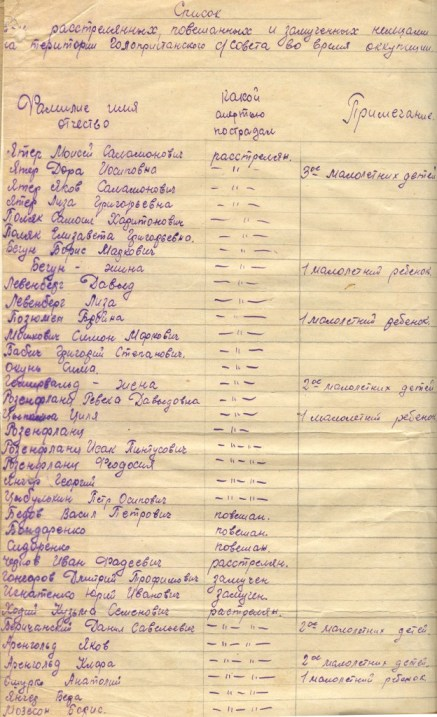 Список
расстремянных, повешанных и замученных немцами
на територии Голопристанского с/совета во время оккупации.
Фамилие имя отчество Какой смертью пострадал Примечание.
Ятер Моисей Саламонович расстрелян.
Ятер Дора Иосиповна — " — 3ое малолетних детей
Ятер Яков Саламонович — " —
Ятер Лиза Григорьевна — " —
Поляк Самоил Харитонович — " —
Поляк Елизавета Григорьевна. — " —
Бегун Борис Маркович — " —
Бегун - жина — " — 1 малолетний ребенок
Левенберг Давыд — " —
Левенберг Лиза — " —
Вдвина — " — 1 малолетний ребенок.
Мошкович Симон Маркович — " —
Бабич Григорий Степанович. — " —
Окунь Сима — " —
- жена — " — 2ое малолетних детей
Розенфланц Ревека Давыдовна — " —
Циля — " — 1 малолетний ребенок
Розенфланц — " —
Розенфланц Исак Пинтусович — " —
Розенфланц Феодосия — " —
Янгер Георгий — " —
Цыбулькин Петр Осипович — " —
Васил Петрович повешан.
Бондаренко повешан.
Сидоренко повешан.
Чернов Иван Фадеевич расстрелян.
Гончаров Дмитрий Трофимович замучен
Игнатенко Юрий Иванович замучен.
Кузьма Семенович расстрелян.
Данил Савельевич — " — 2ое малолетних детей
Аренгольд Яков — " —
Аренгольд Клара — " — 2ое малолетних детей.
Анатолий — " — 1 малолетний ребенок
Янгер Веда — " —
Мозесон Борис. — " —